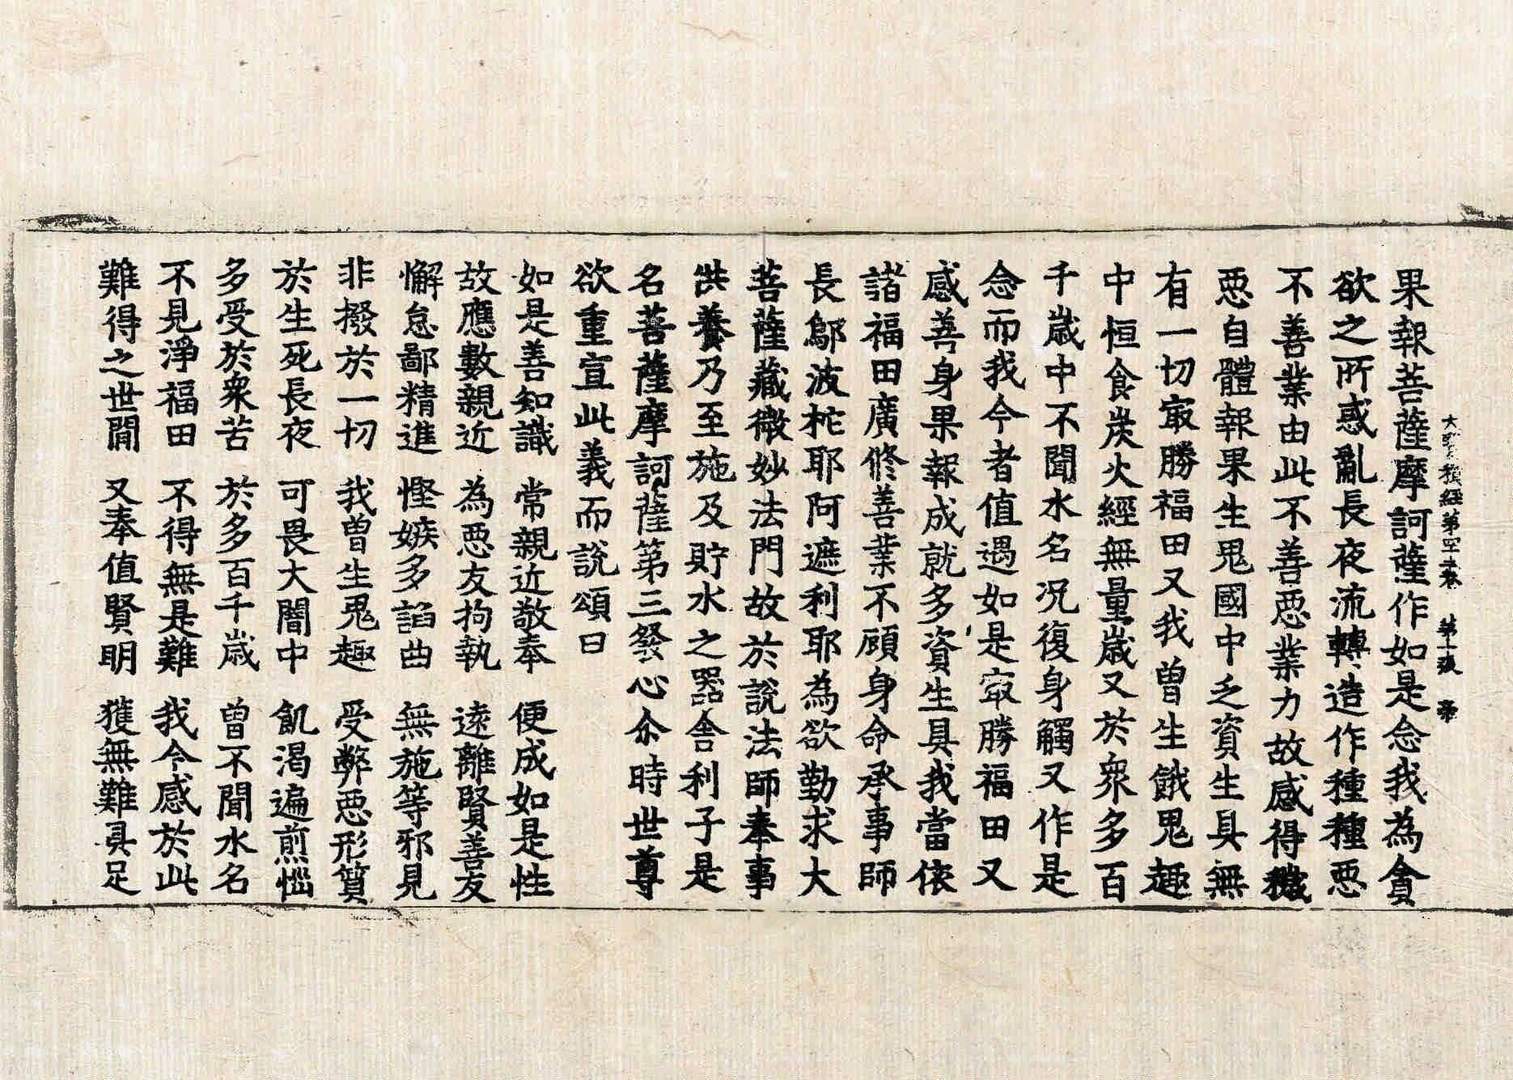 大寶積經第四十二卷　第十二張　柰
果報菩薩摩訶薩作如是念我為貪
欲之所惑亂長夜流轉造作種種惡
不善業由此不善惡業力故感得穢
惡自體報果生鬼國中乏資生具無
有一切㝡勝福田又我曾生餓鬼趣
中恒食炭火經無量歲又於衆多百
千歲中不聞水名况復身觸又作是
念而我今者值遇如是㝡勝福田又
感善身果報成就多資生具我當依
諸福田廣修善業不顧身命承事師
長鄔波柁耶阿遮利耶為欲勤求大
菩薩藏微妙法門故於說法師奉事
供養乃至施及貯水之器舍利子是
名菩薩摩訶薩第三發心尒時世尊
欲重宣此義而說頌曰
如是善知識　常親近敬奉　便成如是性
故應數親近　為惡友拘執　遠離賢善友
懈怠鄙精進　慳嫉多諂曲　無施等邪見
非撥於一切　我曾生鬼趣　受弊惡形質
於生死長夜　可畏大闇中　飢渴遍煎惱
多受於衆苦　於多百千歲　曾不聞水名
不見淨福田　不得無是難　我今感於此
難得之世間　又奉值賢明　獲無難具足